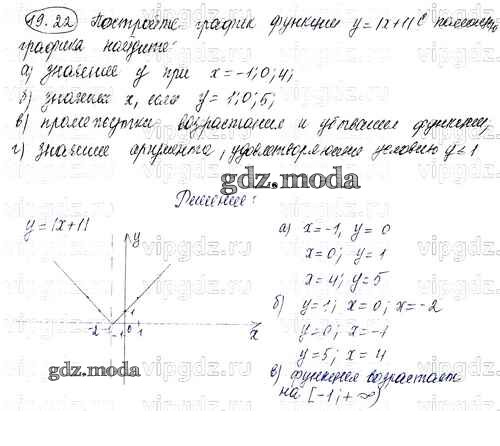 19.22 Постройте график функции y=|x+1| С помощью
графика найдите:
а) значение y при x=-1; 0; 4;
б) значения x, если y=1; 0; 5;
в) промежутки возрастания и убывания функции;
г) значение аргумента, удовлетворяющие условию y≤1
gdz.moda
Решение:
y=|x+1|
y
-2 -1 0 1
x
1
gdz.moda
а) x=-1, y=0
x=0; y=1
x=4; y=5
б) y=1; x=0; x=-2
y=0; x=-1
y=5; x=4
в) функция возрастает
на [-1; +∞)
vipgdz.ru